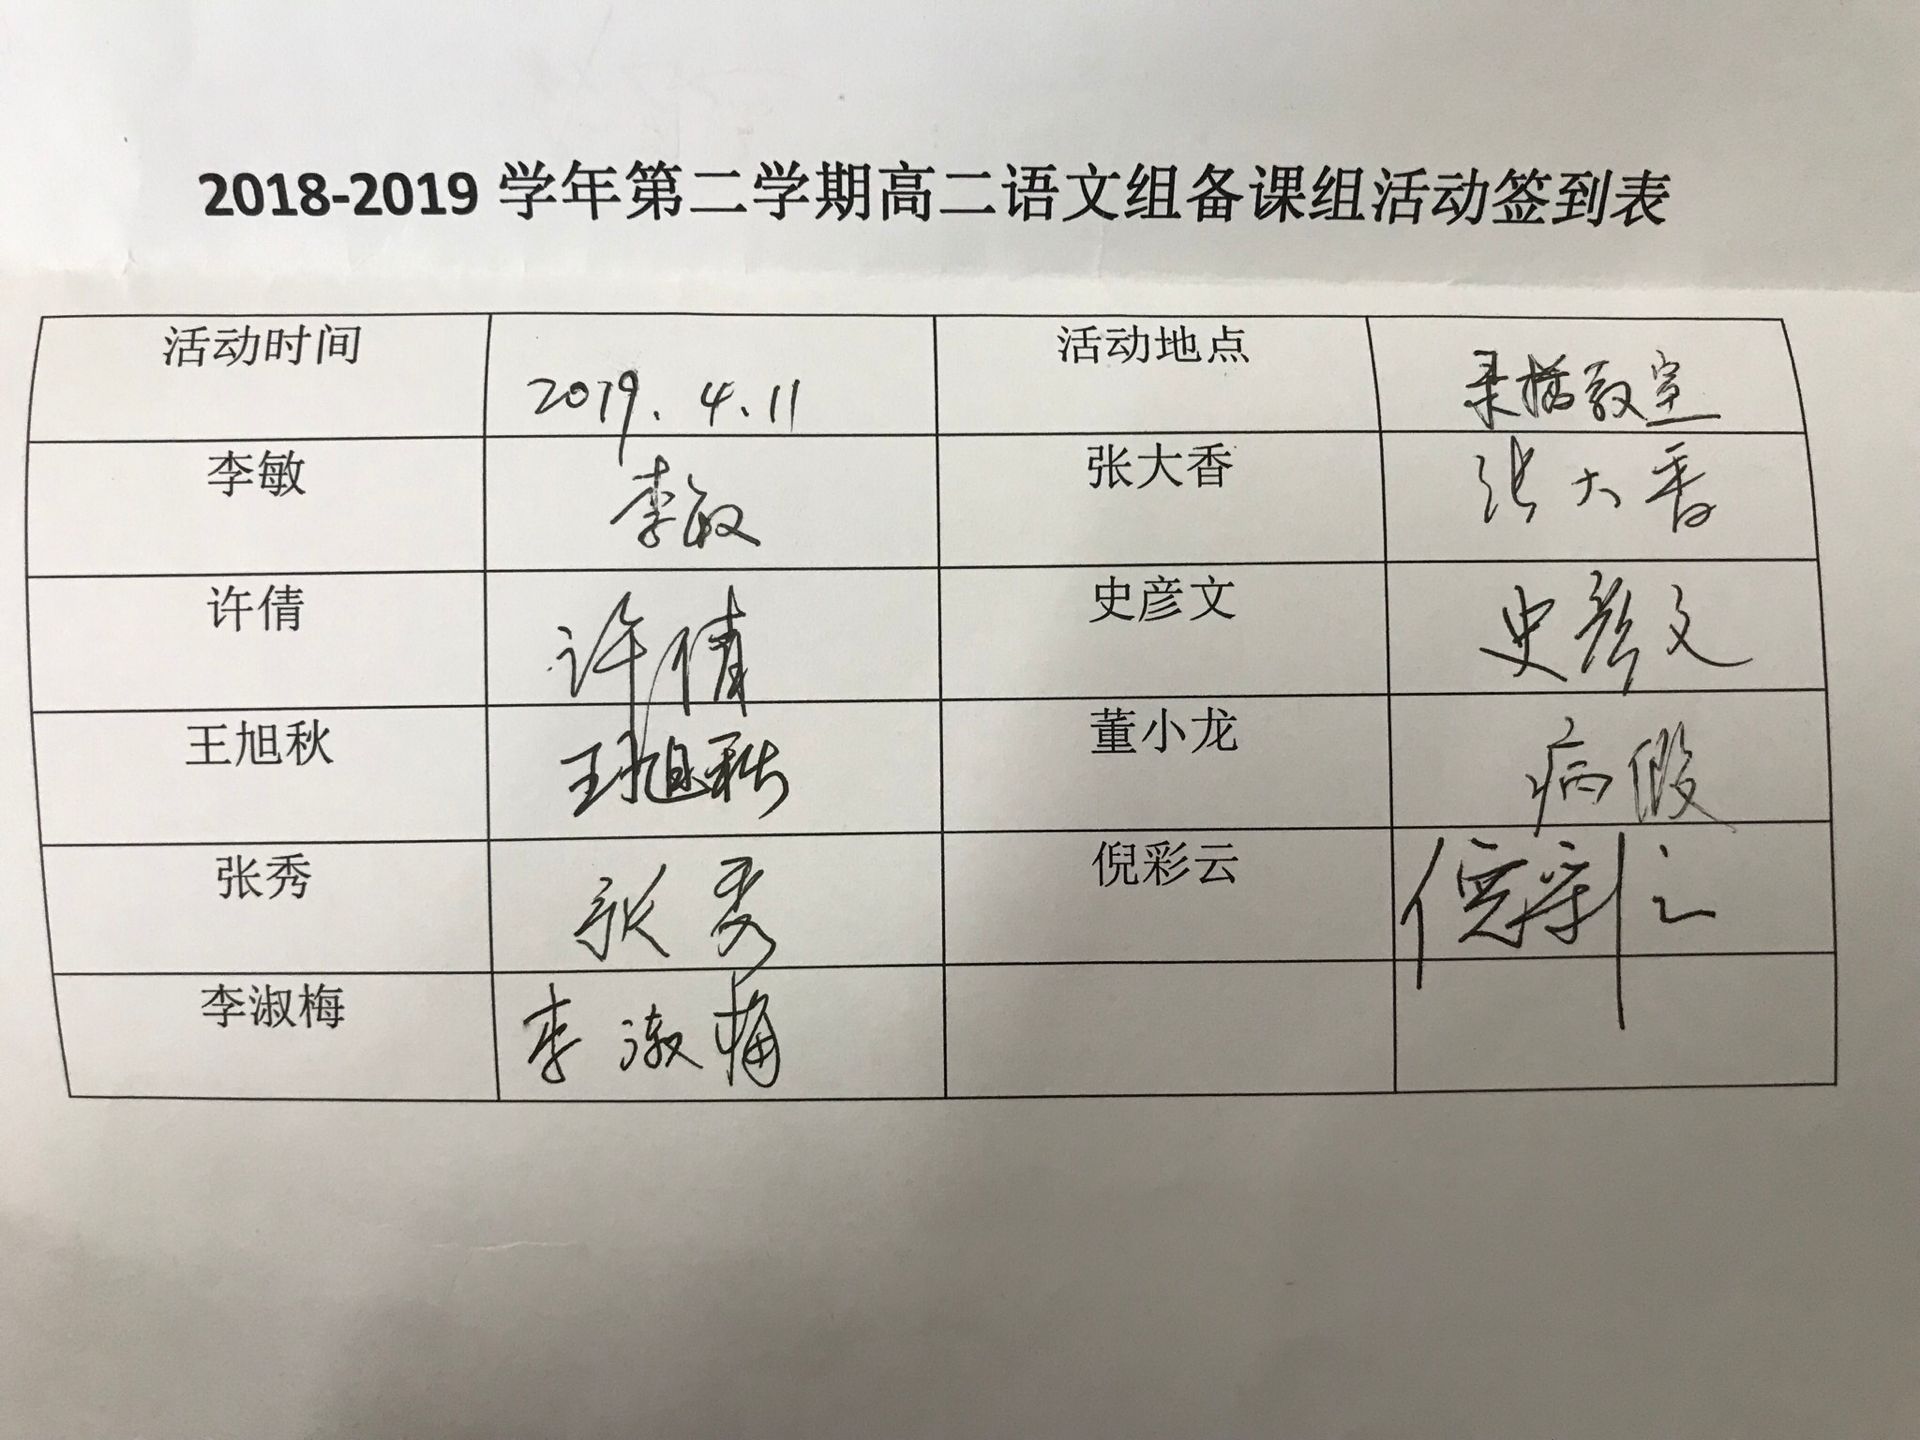 2018-2019 学年第二学期高二语文组备课组活动签到表
活动时间 2019.4.11 活动地点 录播教室
李敏 李敏 张大香 张大香
许倩 许倩 史彦文 史彦文
王旭秋 王旭秋 董小龙 病假
张秀 张秀 倪彩云 倪彩云
李淑梅 李淑梅